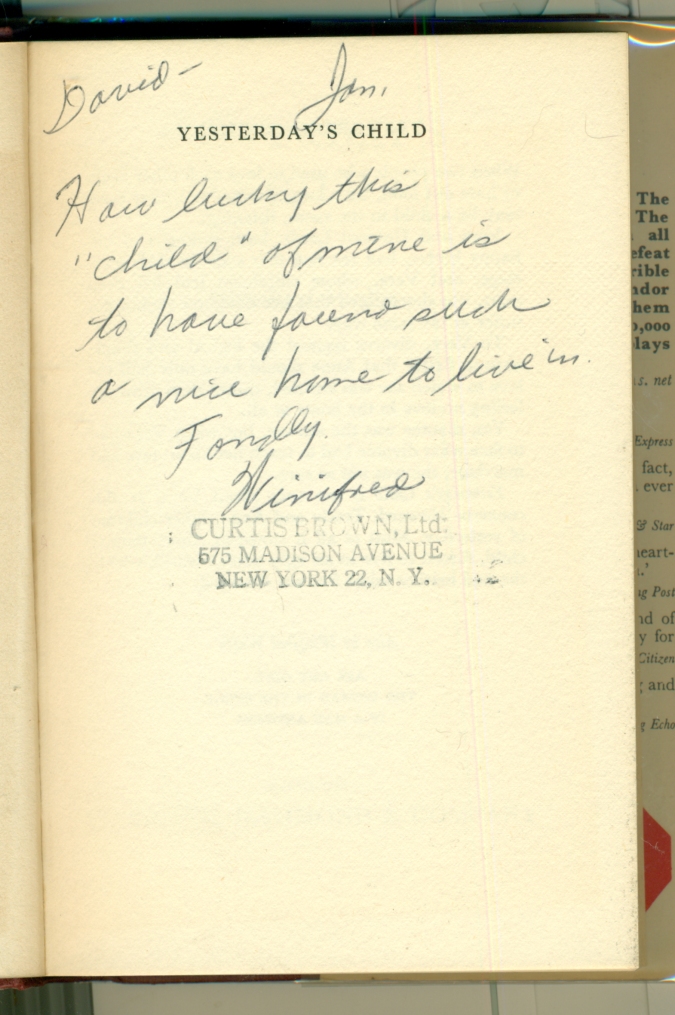 David— Jan,
YESTERDAY'S CHILD
How lucky this
"child" of mine is
to have found such
a nice home to live in.
Fondly.
Winifred
CURTIS BROWN, Ltd.
575 MADISON AVENUE
NEW YORK 22, N. Y.
The
The
all
efeat
rible
ndor
hem
0,000
lays
s. net
Express
fact,
ever
& Star
heart-
.'
g Post
nd of
y for
Citizen
and
g Echo